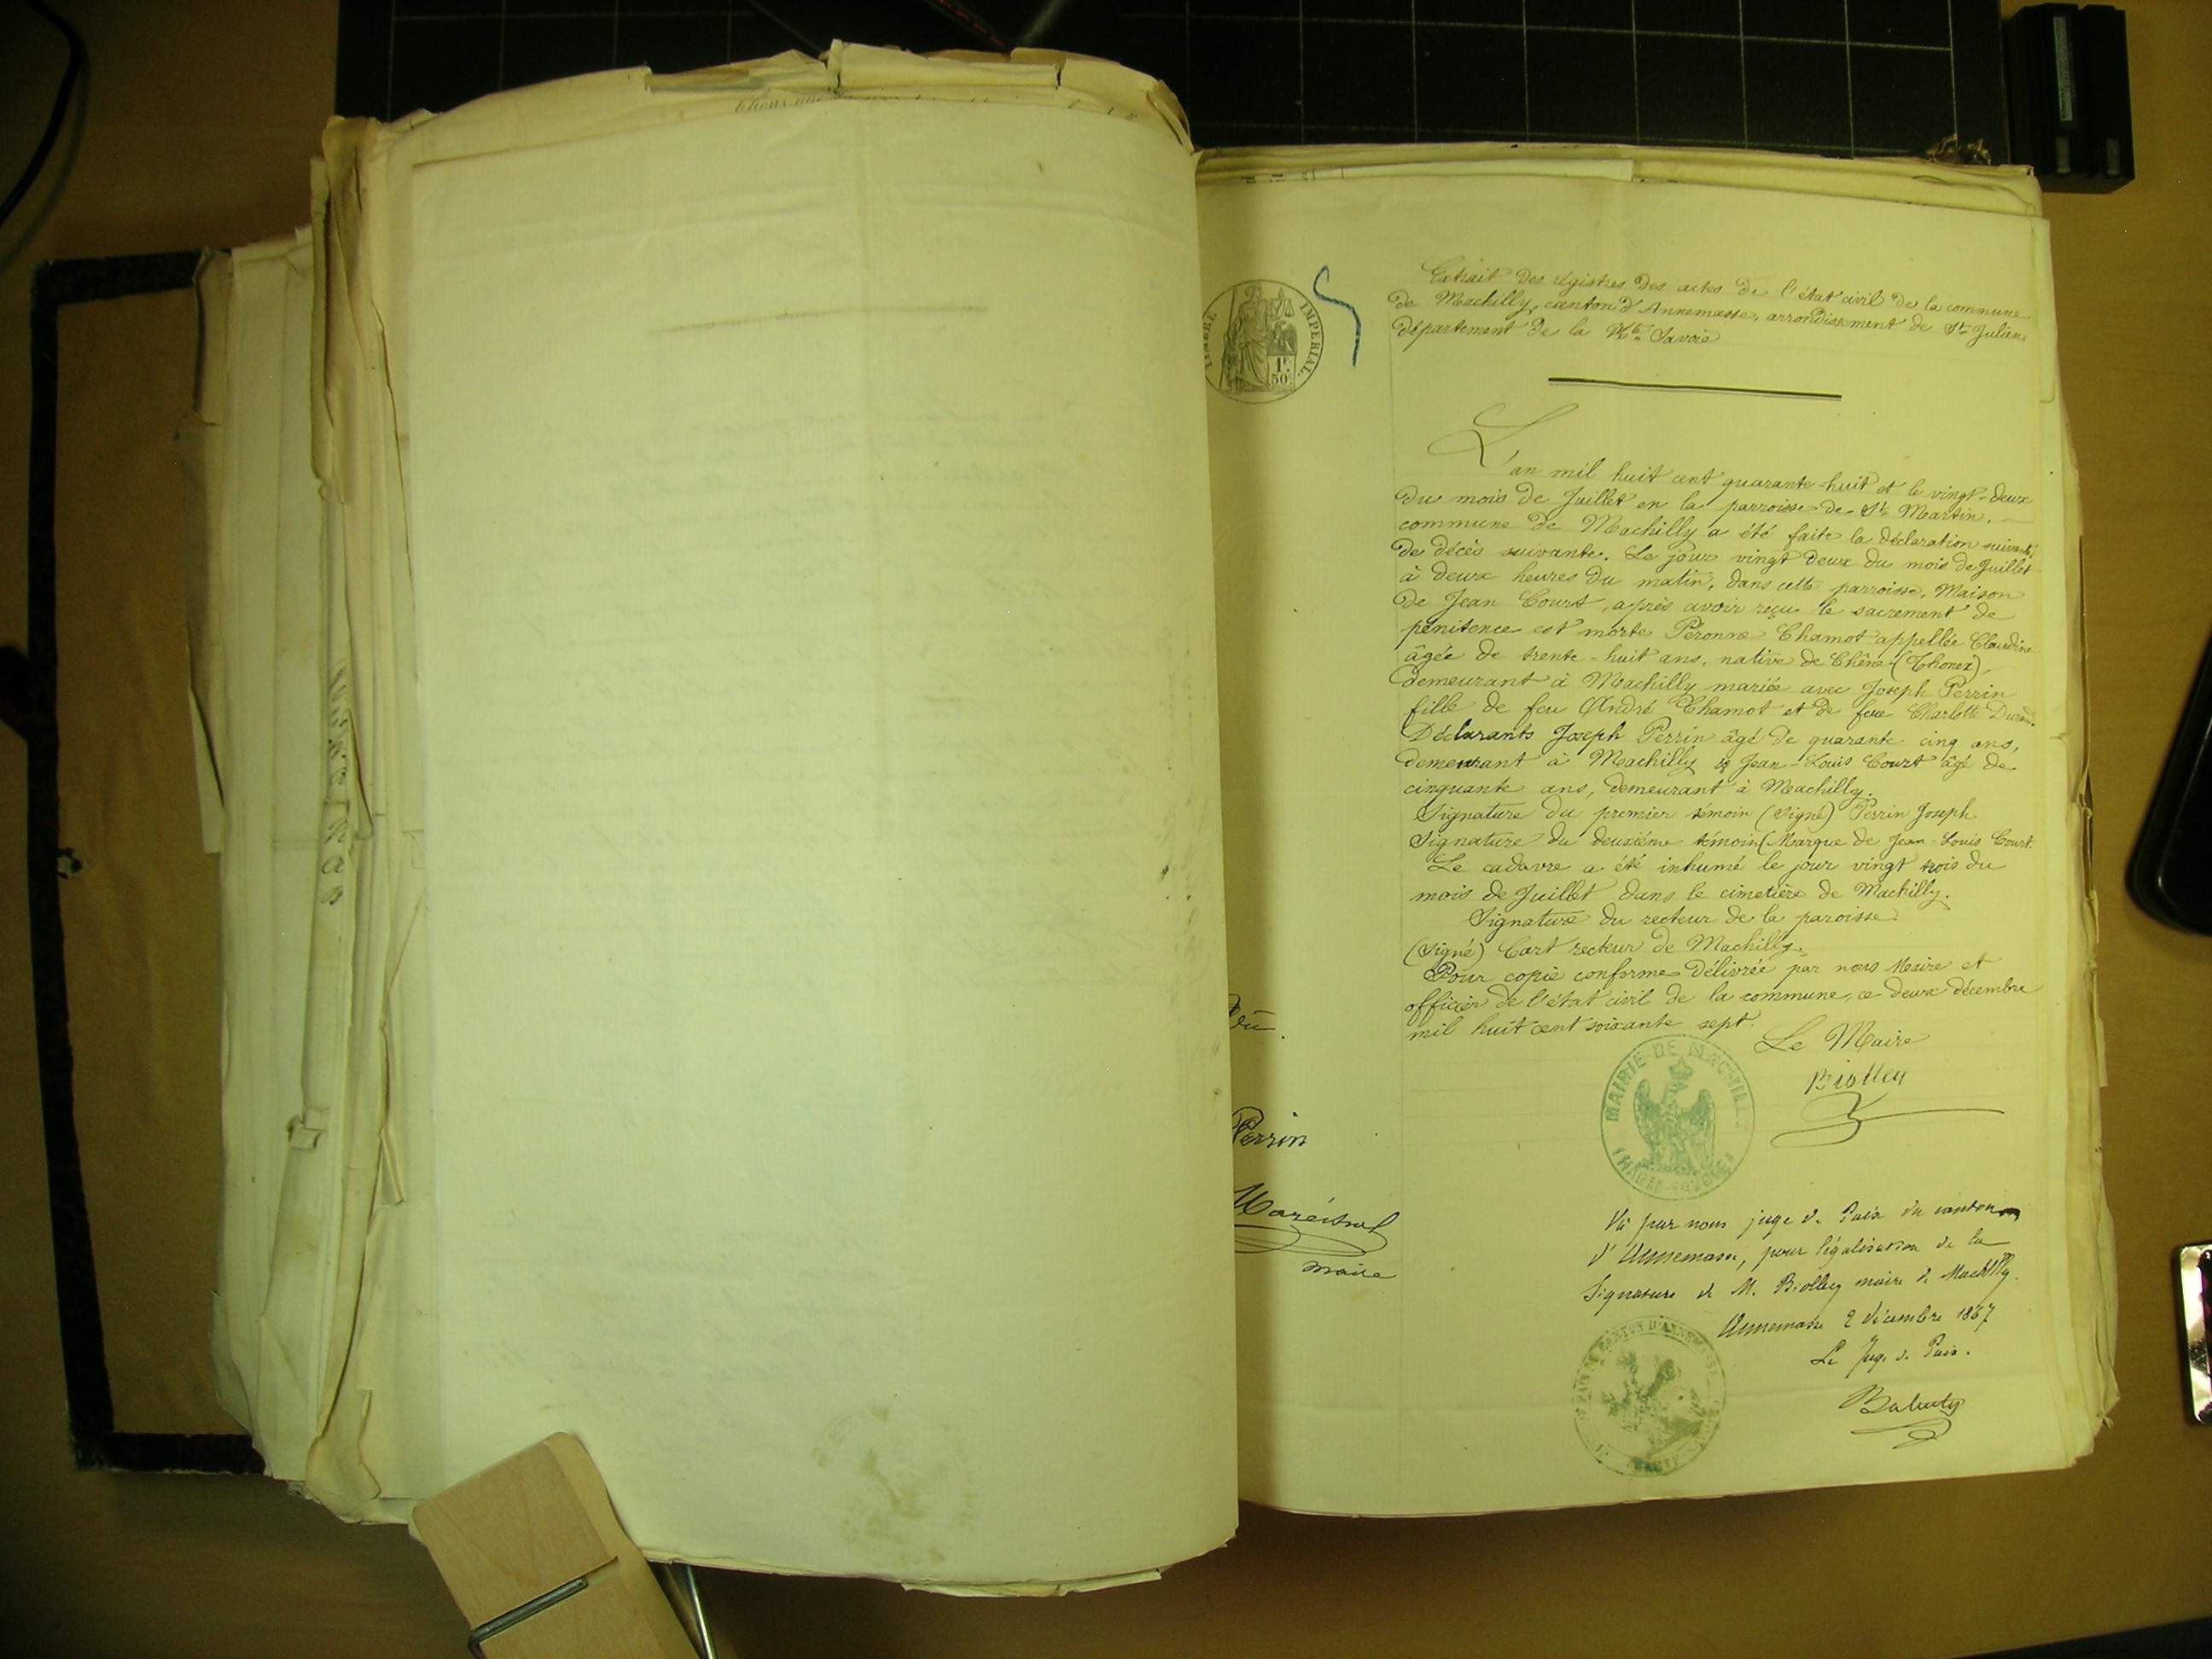 TIMBRE IMPERIAL
1F.
50c
Extrait des régistres des actes de l'état civil de la commune
de Machilly, canton d'Annemasse, arrondissement de St Julien
département de la Hte Savoie
L'an mil huit cent quarante-huit et le vingt-deux
du mois de Juillet en la parroisse de St Martin,
commune de Machilly a été faite la déclaration suivante
de décès suivante. Le jour vingt deux du mois de Juillet
à deux heures du matin, dans cette parroisse, Maison
de Jean Court, après avoir reçu le sacrement de
pénitence est morte Péronne Chamot appellée Claudine
âgée de trente-huit ans, native de Chêne (Thonex)
demeurant à Machilly mariée avec Joseph Perrin
fille de feu André Chamot et de feue Charlotte Durand.
Déclarants Joseph Perrin âgé de quarante cinq ans,
demeurant à Machilly & Jean-Louis Court âgé de
cinquante ans, demeurant à Machilly.
Signature du premier témoin (Signé) Perrin Joseph
Signature du deuxième témoin (Marque de Jean-Louis Court.
Le cadavre a été inhumé le jour vingt trois du
mois de Juillet dans le cimetière de Machilly.
Signature du recteur de la paroisse.
(Signé) Cart recteur de Machilly.
Pour copie conforme délivrée par nous Maire et
officier de l'état civil de la commune, ce deux décembre
mil huit cent soixante sept.
Le Maire
Biolley
MAIRIE DE MACHILLY
(HAUTE-SAVOIE)
Vu
Perrin
Maréchal
maire
Vu par nous juge de Paix du canton
d'Annemasse, pour légalisation de la
Signature de M. Biolley maire de Machilly.
Annemasse 2 décembre 1867
Le Juge de Paix.
CANTON D'ANNEMASSE